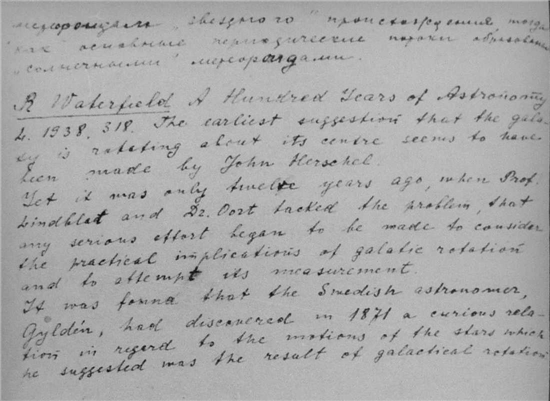 метеороидами "звездного" происхождения тогда
как основные периодические потоки образованы
"солнечными" метеороидами.
R Waterfield A Hundred Years of Astronomy
L. 1938. 318. The earliest suggestion that the gala-
xy is rotating about its centre seems to have
been made by John Herschel.
Yet it was only twelve years ago, when Prof.
Lindblat and Dr. Oort tacked the problem, that
any serious effort began to be made to consider
the practical implications of galatic rotation
and to attempt its measurement.
It was found that the Swedish astronomer,
Gyldén, had discovered in 1871 a curious rela-
tion in regard to the motions of the stars which
he suggested was the result of galactical rotation